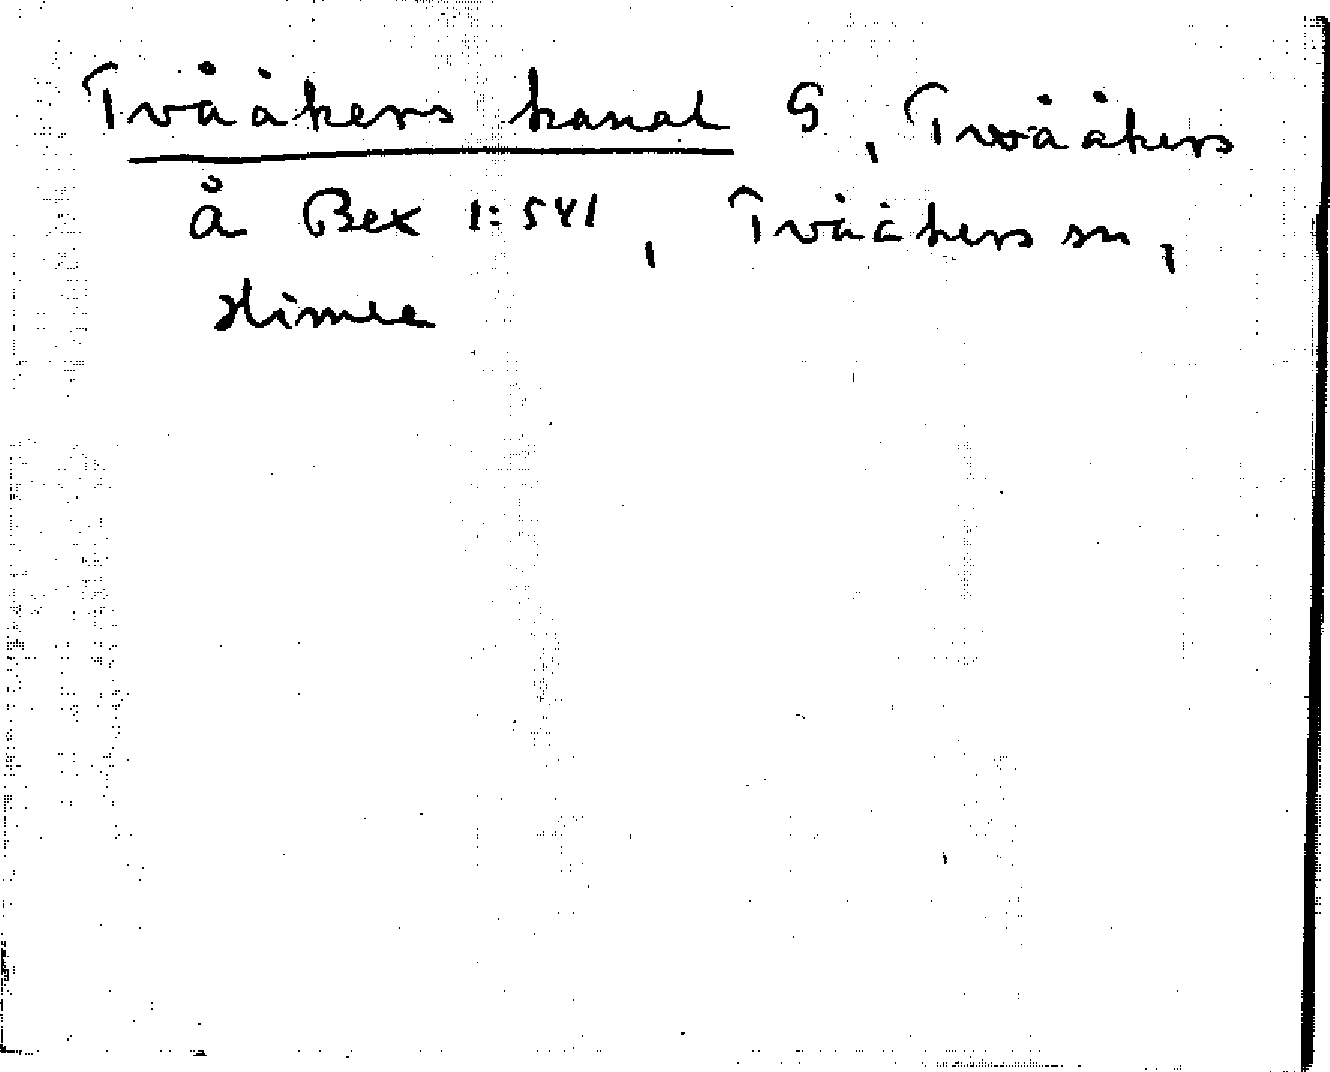 Tvååkers kanal G, Tvååkers
å Bex 1:541, Tvååkers sn,
Himle